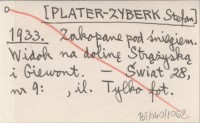 [PLATER-ZYBERK Stefan]
1933. Zakopane pod śniegiem.
Widok na dolinę Strążyską
i Giewont. — Świat 28,
nr 9: , il. Tylko fot.